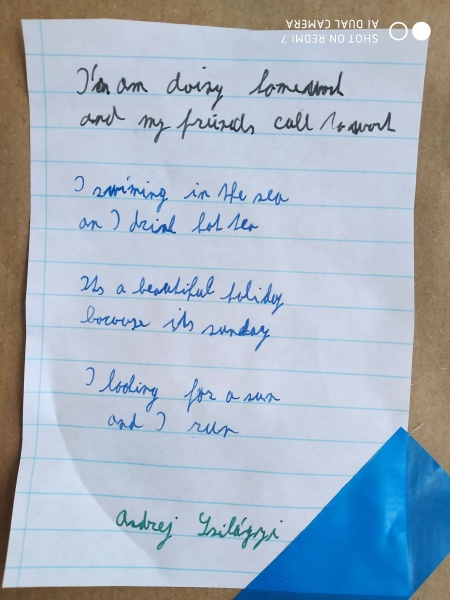 SHOT ON REDMI 7
AI DUAL CAMERA
I'm am doing homework
and my friends call to work
I swiming in the sea
an I drink hot tea
Its a beautiful holiday
becouse its sunday
I looking for a sun
and I run
Andrej